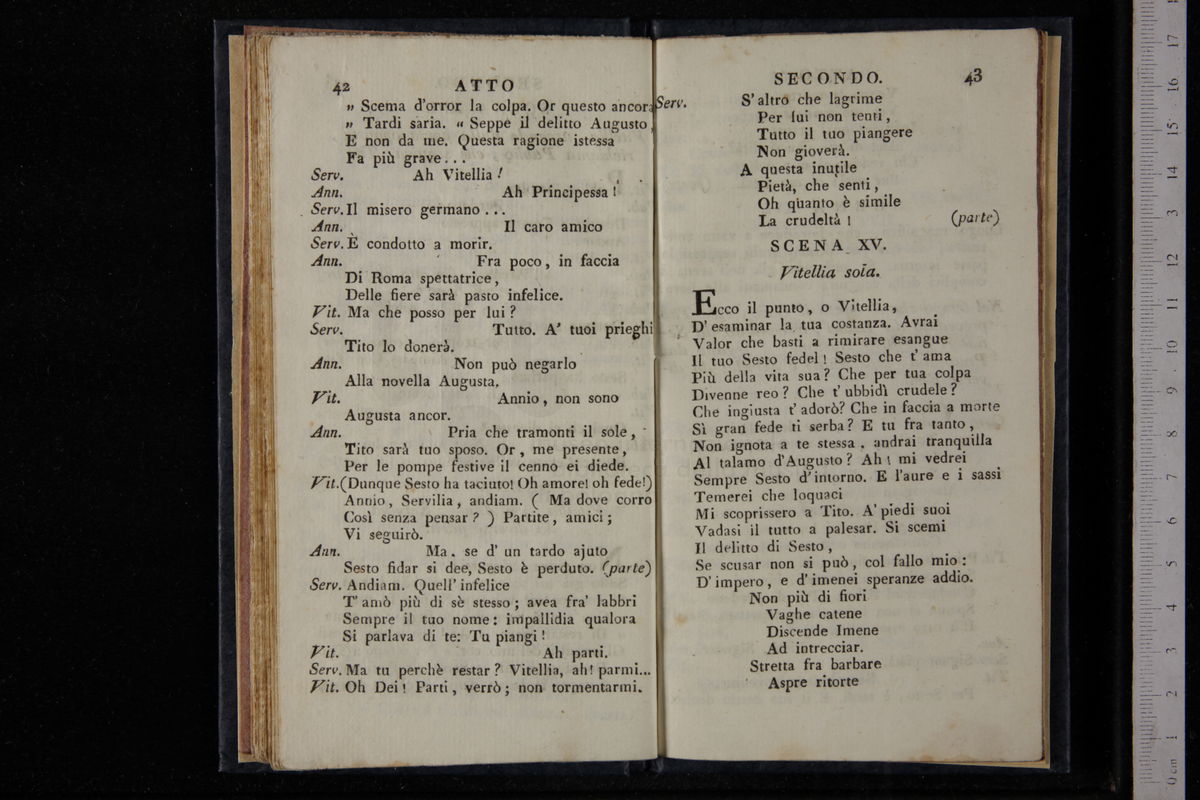 42 ATTO
„ Scema d'orror la colpa. Or questo ancora
„ Tardi saria. “ Seppe il delitto Augusto,
E non da me. Questa ragione istessa
Fa più grave...
Serv. Ah Vitellia!
Ann. Ah Principessa!
Serv. Il misero germano...
Ann. Il caro amico
Serv. È condotto a morir.
Ann. Fra poco, in faccia
Di Roma spettatrice,
Delle fiere sarà pasto infelice.
Vit. Ma che posso per lui?
Serv. Tutto. A' tuoi prieghi
Tito lo donerà.
Ann. Non può negarlo
Alla novella Augusta.
Vit. Annio, non sono
Augusta ancor.
Ann. Pria che tramonti il sole,
Tito sarà tuo sposo. Or, me presente,
Per le pompe festive il cenno ei diede.
Vit. (Dunque Sesto ha taciuto! Oh amore! oh fede!)
Annio, Servilia, andiam. ( Ma dove corro
Così senza pensar? ) Partite, amici;
Vi seguirò.
Ann. Ma. se d' un tardo ajuto
Sesto fidar si dee, Sesto è perduto. (parte)
Serv. Andiam. Quell' infelice
T' amò più di sè stesso; avea fra' labbri
Sempre il tuo nome: impallidia qualora
Si parlava di te: Tu piangi!
Vit. Ah parti.
Serv. Ma tu perchè restar? Vitellia, ah! parmi...
Vit. Oh Dei! Parti, verrò; non tormentarmi.
SECONDO. 43
Serv. S' altro che lagrime
Per lui non tenti,
Tutto il tuo piangere
Non gioverà.
A questa inutile
Pietà, che senti,
Oh quanto è simile
La crudeltà! (parte)
SCENA XV.
Vitellia sola.
Ecco il punto, o Vitellia,
D' esaminar la tua costanza. Avrai
Valor che basti a rimirare esangue
Il tuo Sesto fedel! Sesto che t' ama
Più della vita sua? Che per tua colpa
Divenne reo? Che t' ubbidì crudele?
Che ingiusta t' adorò? Che in faccia a morte
Sì gran fede ti serba? E tu fra tanto,
Non ignota a te stessa. andrai tranquilla
Al talamo d'Augusto? Ah! mi vedrei
Sempre Sesto d' intorno. E l'aure e i sassi
Temerei che loquaci
Mi scoprissero a Tito. A' piedi suoi
Vadasi il tutto a palesar. Si scemi
Il delitto di Sesto,
Se scusar non si può, col fallo mio:
D' impero, e d' imenei speranze addio.
Non più di fiori
Vaghe catene
Discende Imene
Ad intrecciar.
Stretta fra barbare
Aspre ritorte
0 cm 1 2 3 4 5 6 7 8 9 10 11 12 13 14 15 16 17